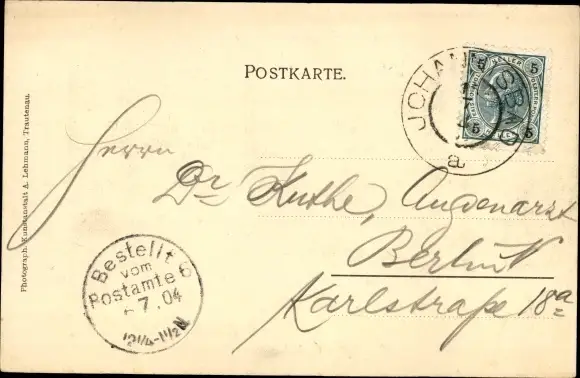 POSTKARTE.
5 HELLER 5
5 5
JOHANNISBAD
a
Herrn
Dr Kuthe, Augenarzt
Berlin N
Karlstraße 18a
Bestellt
vom
Postamte 6
7.04
12 1/4-1 1/2 N
Photograph. Kunstanstalt A. Lehmann, Trautenau.